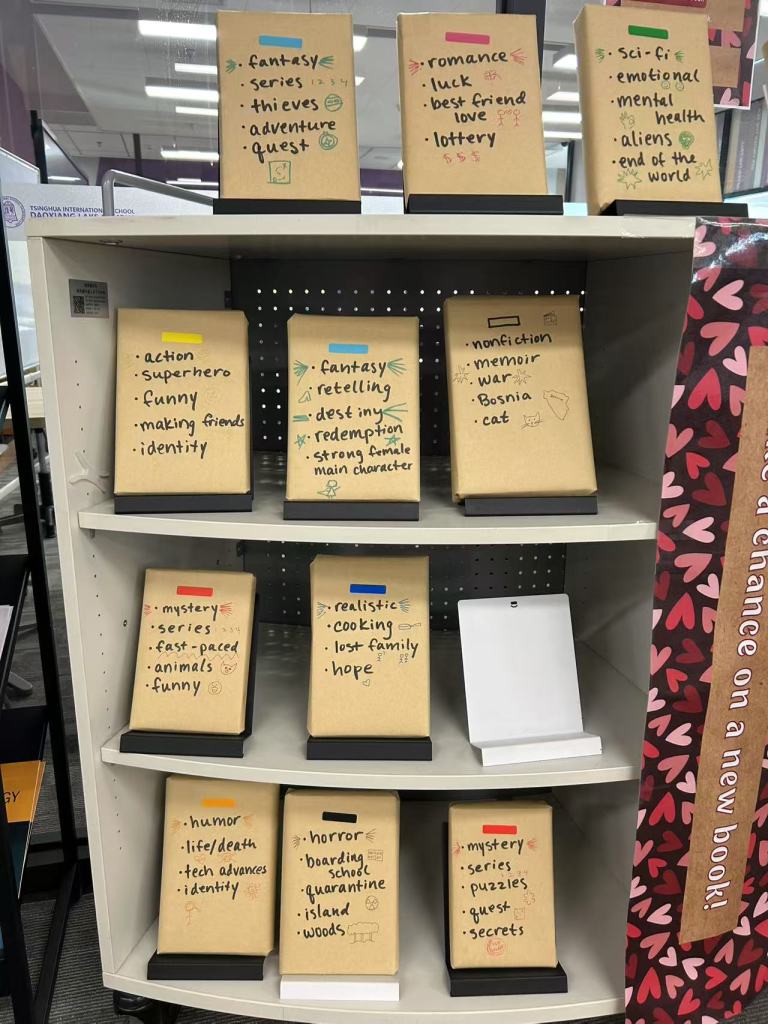 • fantasy
• series 1 2 3 4
• thieves
• adventure
• quest
• romance
• luck
• best friend
love
• lottery
$ $ $
• sci-fi
• emotional
• mental
health
• aliens
• end of the
world
TSINGHUA INTERNATIONAL SCHOOL
DAOXIANG LAKE
• action
• superhero
• funny
• making friends
• identity
• fantasy
• retelling
• destiny
• redemption
• strong female
main character
• nonfiction
• memoir
• war
• Bosnia
• cat
• mystery
• series 1 2 3 4
• fast-paced
• animals
• funny
• realistic
• cooking
• lost family
• hope
• humor
• life/death
• tech advances
• identity
• horror
• boarding
school
• quarantine
• island
• woods
• mystery
• series 1 2 3 4
• puzzles
• quest
• secrets
a chance on a new book!
GY